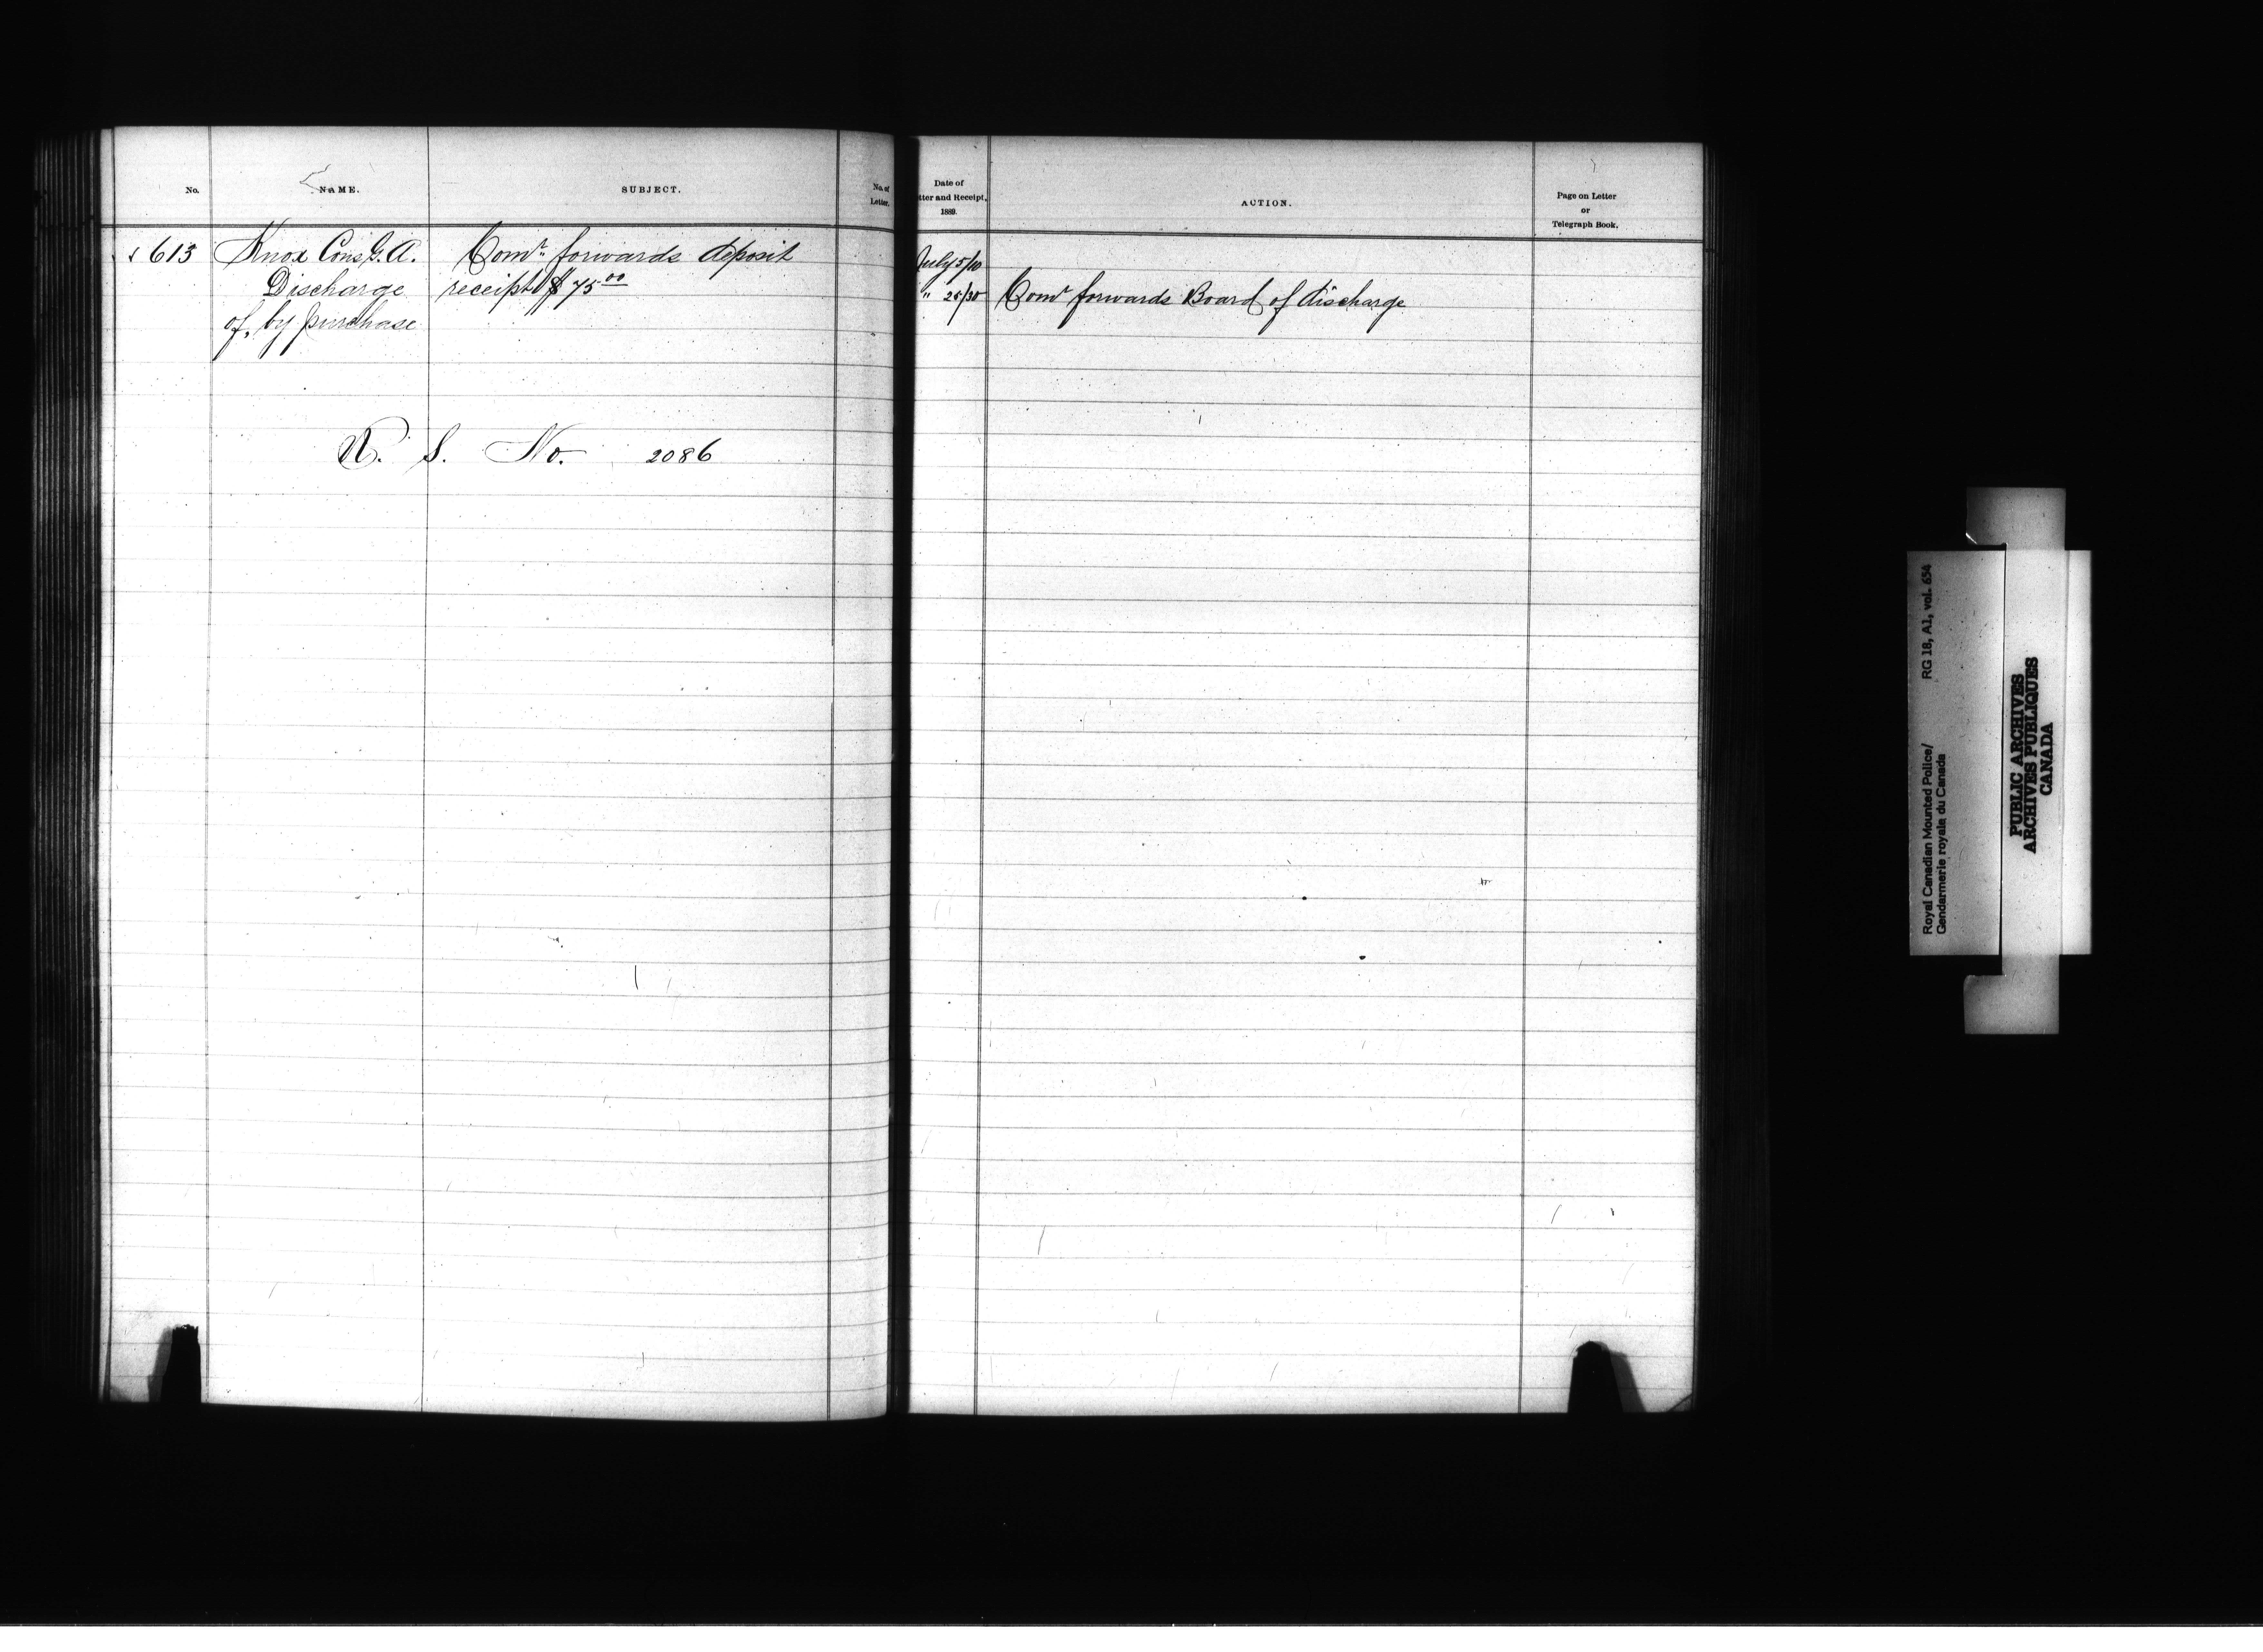 No.
NAME.
SUBJECT.
No. of
Letter.
613 Knox Cons G. A. Comr. forwards deposit
Discharge receipt $75.00
of, by purchase
R. S. No. 2086
Date of
tter and Receipt,
1889.
ACTION.
Page on Letter
or
Telegraph Book.
July 5/10
" 25/30 Comr forwards Board of discharge
Royal Canadian Mounted Police/ RG 18, A1, vol. 654
Gendarmerie royale du Canada
PUBLIC ARCHIVES
ARCHIVES PUBLIQUES
CANADA